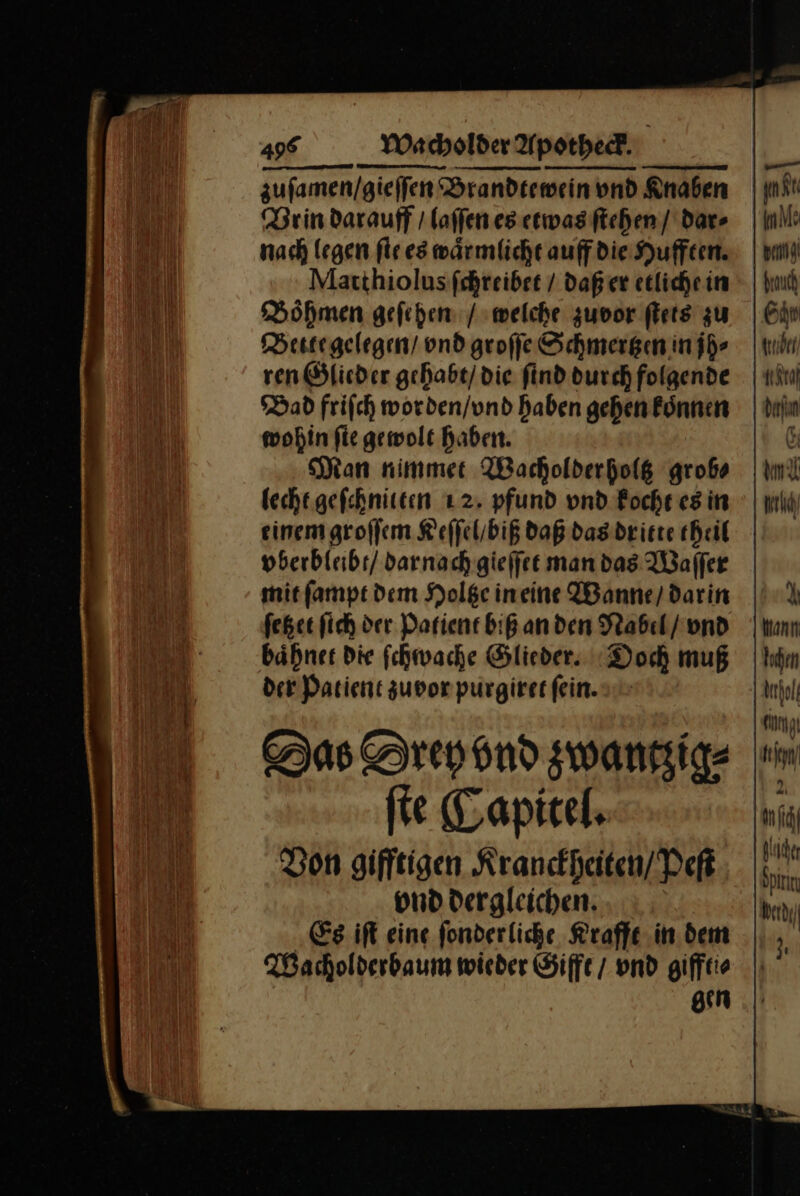 496 Wacholder Apotheck.
zuſamen/gieſſen Brandtewein vnd Knaben
Vrin darauff / laſſen es etwas ſtehen / dar⸗
nach legen ſie es waͤrmlicht auff die Hufften.
Matthiolus ſchreibet / daß er etliche in
Boͤhmen geſehen / welche zuvor ſtets zu
Bette gelegen/ vnd groſſe Schmertzen in jh⸗
ren Glieder gehabt/ die ſind durch folgende
Bad friſch worden/vnd haben gehen koͤnnen
wohin ſie gewolt haben.
Man nimmet Wacholderholtz grob⸗
lecht geſchnitten 12. pfund vnd kocht es in
einem groſſem Keſſel/biß daß das dritte theil
vberbleibt/ darnach gieſſet man das Waſſer
mit ſampt dem Holtze in eine Wanne/ darin
ſetzet ſich der Patient biß an den Nabel / vnd
baͤhnet die ſchwache Glieder. Doch muß
der Patient zuvor purgiret ſein.
Das Drey vnd zwantzig⸗
ſte Capitel.
Von gifftigen Kranckheiten/ Peſt
vnd dergleichen.
Es iſt eine ſonderliche Krafft in dem
Wacholderbaum wieder Gifft / vnd giffti⸗
gen